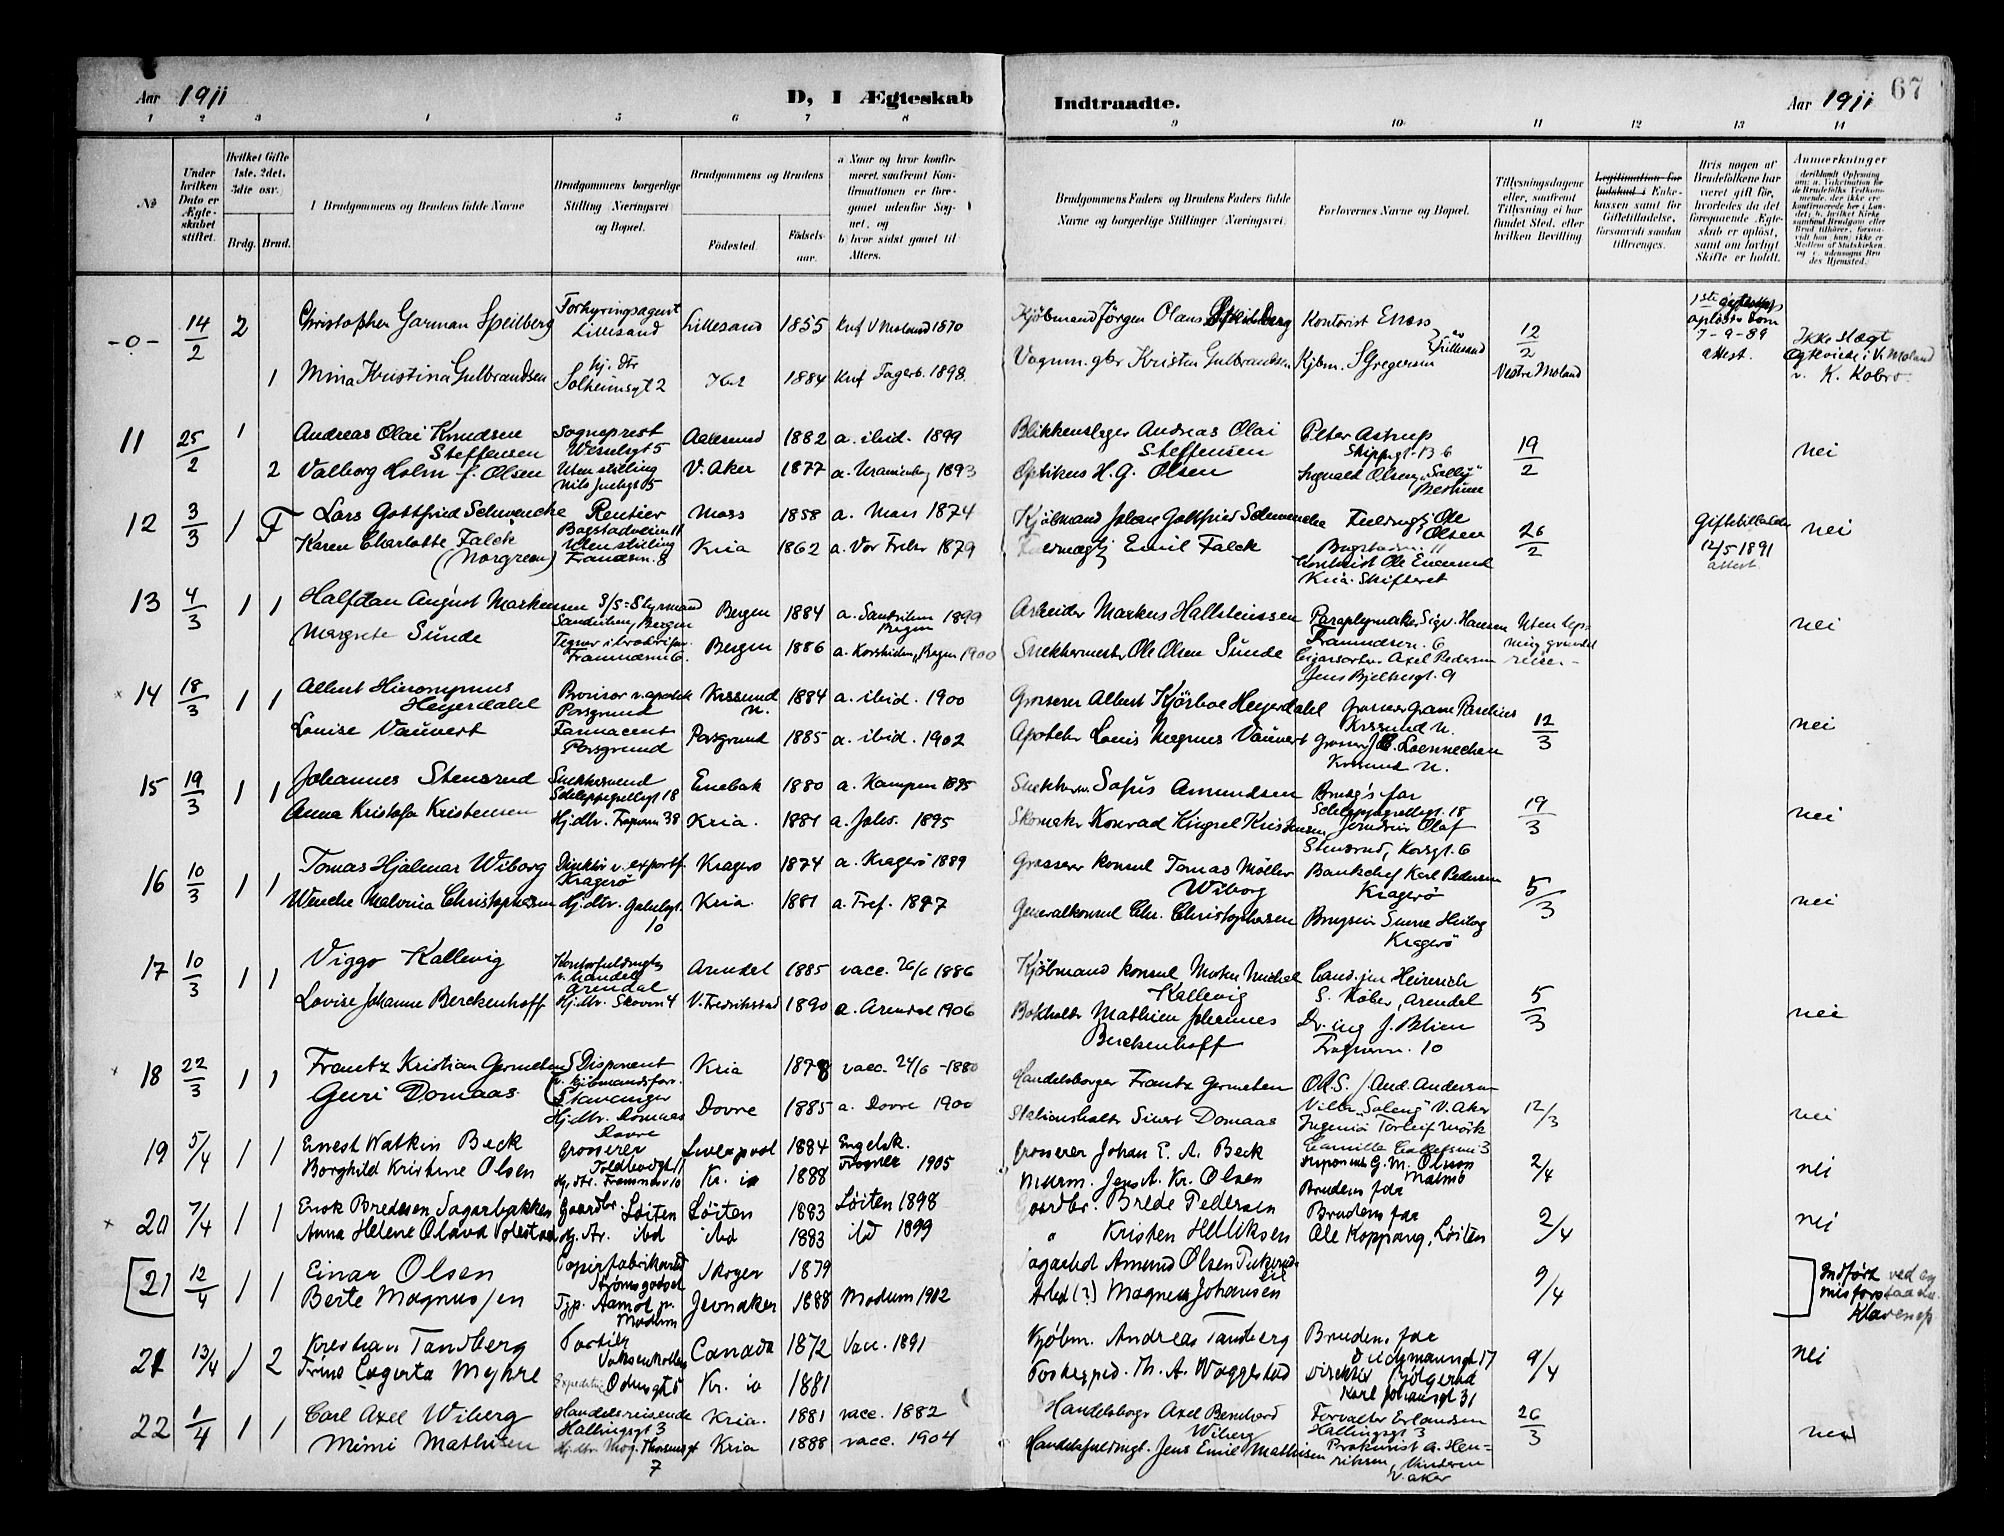 Aar 1911 D, I Ægteskab Indtraadte. Aar 1911 67
1 2 3 4 5 6 7 8 9 10 11 12 13 14
No
Under hvilken Dato er Ægteskabet stiftet.
Hvilket Gifte 1ste, 2det, 3die osv.
Brdg. Brud.
Brudgommens og Brudens fulde Navne
Brudgommens borgerlige Stilling Næringsvei og Bopæl.
Brudgommens og Brudens
Fødested. Fødselsaar.
a Naar og hvor konfirmeret, saafremt Konfirmationen er foregaaet udenfor Sognet, og
b) hvor sidst gaaet til Alters.
Brudgommens Faders og Brudens Faders fulde Navne og borgerlige Stillinger (Næringsvei.
Forlovernes Navne og Bopæl.
Tillysningsdagene eller, saafremt Tillysning ei har fundet Sted, efter hvilken Bevilling
Legitimation for Indskud i Enkekassen samt for Giftetilladelse, forsaavidt saadan tiltrænges.
Hvis nogen af Brudefolkene har været gift før, hvorledes da det foregaaende Ægteskab er opløst, samt om lovligt Skifte er holdt.
Anmerkninger
-0- 14/2 2 Christopher Garman Speilberg Forhyringsagent Lillesand Lillesand 1855 Knf V Moland 1870 Kjøbmand Jörgen Claus Kontorist Enoss 12/2 Vestre Moland 7-9-89 attest.
1 Mina Kristina Gulbrandsen hj. dtr Solheimsgt 2 1884 Knf Fagerb. 1898 Vognm. gbr Kristen Gulbrandsen Kjbm. S Gregersen Lillesand Ikke v. K. Kobro
11 25/2 1 Andreas Olai Knudsen Steffensen Sogneprest Wesselsgt 5 Aalesund 1882 a. ibid. 1899 Blikkenslager Andreas Olai Steffensen Peter Astrup Skippergt. 13 b 19/2 nei
2 Valborg Holm f. Olsen Uten stilling Nils Juelsgt 5 V. Aker 1877 a. Uranienborg 1893 Optikus H. G. Olsen Sigvald Olsen, "Solly" Bestum
12 3/3 1 F Lars Gottfried Schwencke Rentier Bogstadveien 11 Moss 1858 a. Moss 1874 Kjöbmand Johan Gottfried Schwencke Fuldmægtig Ole Olsen Bogstadv. 11 26/2 12/5 1891 attest. nei
Karen Charlotte Falck (Norgreen) Uten stilling Framnesv. 8 Kria 1862 a. Vor Frelser 1879 Fuldmægtig Emil Falck Kontorist Ole Kria. Skifteret
13 4/3 1 1 Halfdan August Markussen Styrmand Sandviken, Bergen Bergen 1884 a. Sandviken Bergen 1899 Arbeider Markus Hallsteinssen Paraplymaker Sigv. Hansen Framnesv. 6 nei
Margrete Sunde Framnesv. 6. Bergen 1886 a. Korskirken, Bergen 1900 Snekkermester Ole Olsen Sunde Cigararb. Axel Pedersen Jens Bjelkesgt. 9
14 18/3 1 1 Albert Hieronymus Heyerdahl Provisor v. apotek Porsgrund Krssund N. 1884 a. ibid. 1900 Grosserer Albert Kjörboe Heyerdahl Krssund N. 12/3 nei
Louise Vauvert Farmaceut Porsgrund Porsgrund 1885 a. ibid. 1902 Apoteker Louis Magnus Vauvert Grosserer Loennechen Krssund N.
15 19/3 1 1 Johannes Stensrud Snekkersvend Schleppegrellsgt 18 Enebak 1880 a. Kampen 1895 Snekkerm. Sofus Amundsen Brudg's far Schleppegrellsgt. 18 19/3 nei
Anna Kristofa Kristensen Hj. dtr. Frognerv 38 Kria. 1881 a. Johs. 1895 Skomaker Konrad Kristensen Olaf Stensrud, Korsgt. 6
16 10/3 1 1 Tomas Hjalmar Wiborg Direktör v. exportf. Kragerö Kragerø 1874 a. Kragerö 1889 Grosserer konsul Tomas Möller Wiborg Bankchef Karl Pedersen Kragerö 5/3 nei
Wenche Malvina Christophersen Hj. dtr. Gabelsgt. 10 Kria. 1881 a. Tref. 1897 Generalkonsul Chr. Christophersen Kragerö
17 10/3 1 1 Viggo Kallevig Arendal Arendal 1885 vacc. 26/6 1886 Kjöbmand konsul Morten Michael Kallevig Cand. jur Heinrich S. Köber, Arendal 5/3 nei
Lovise Johanne Berckenhoff Hj. dtr. Skovvn 4 V. Fredrikstad 1890 a. Arendal 1906 Bokholder Mathieu Johannes Berckenhoff Dr. ing J. Blien Frognerv. 10
18 22/3 1 1 Frantz Kristian Germeten Disponent v. kjöbmandsfor. Stavanger Kria 1878 vacc. 24/6 -1880 Handelsborger Frantz Germeten O.R.S. And. Andersen Villa "Soleng" V. Aker 12/3 nei
Guri Domaas Hj. dtr. Domaas Dovre Dovre 1885 a. Dovre 1900 Stationsholder Sivert Domaas Ingeniör Torleif Mörk Camilla Colletsvn 3
19 5/4 1 1 Ernest Watkin Beck Grosserer Toldbodgt 11 Liverpool 1884 Engelsk. Grosserer Johan E. A. Beck Disponent G. M. Olsson Malmö 2/4 nei
Borghild Kristine Olsen Hj. dtr. Framnesv 10 Kr. ia 1888 Frogner 1905 Murm. Jens A. Kr. Olsen Brudens far
20 7/4 1 1 Enok Bredesen Sagerbakken Gaardbr. Løiten Løiten 1883 Løiten 1898 Gaardbr. Brede Pedersen Brudens far 2/4 nei
Anna Helene Olava ibd ibd 1883 ibd 1899 " Kristen Henriksen Ole Koppang, Løiten
[21 12/4 1 1 Einar Olsen Papirfabrikarb. Strømsgodset Skoger 1879 Amund Olsen 9/4 Indført ved en misforstaaelse. Klaveness
Berte Magnussen Tjp. Aamot p. Modum Jevnaker 1888 Modum 1902 Arbd (?) Magnus Johansen
21 13/4 1 2 Kristian Tandberg Portier Voksenkollen Canada 1872 Vacc. 1891 Kjøbm. Andreas Tandberg Brudens far Deichmannsgt 17 9/4 nei
Trine Cagerta Myhre Odinsgt 5 Kr. ia 1881 Postexped. Th. A. Waggestad Direktør Karl Johansgt 31
22 1/4 1 1 Carl Axel Wiberg Handelsreisende Hallingsgt 3 Kria. 1881 vacc. 1882 Handelsborger Axel Bernhard Wiberg Forvalter Erlandsen Hallingsgt 3 26/3 nei
Mimi Mathisen Hj. dtr. Mog. Thorsensgt 7 Kria 1888 vacc. 1904 Handelsfuldmægt. Jens Emil Mathisen Prokurist A. Henriksen, Vinderen V. Aker